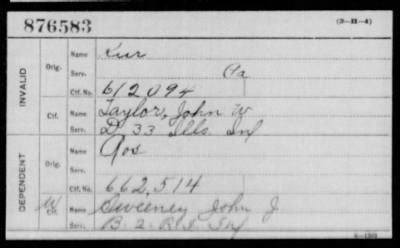 876583
(3-H-4)
INVALID
Orig.
Name Kur
Serv. Pa
Ctf. No. 612094
Ctf.
Name Taylor, John W
Serv. D, 33 Ills. Inf
DEPENDENT
Orig.
Name Ros
Serv.
Ctf. No. 662,514
W
Ctf.
Name Sweeney John J
Serv. B. 2. R.I. Inf